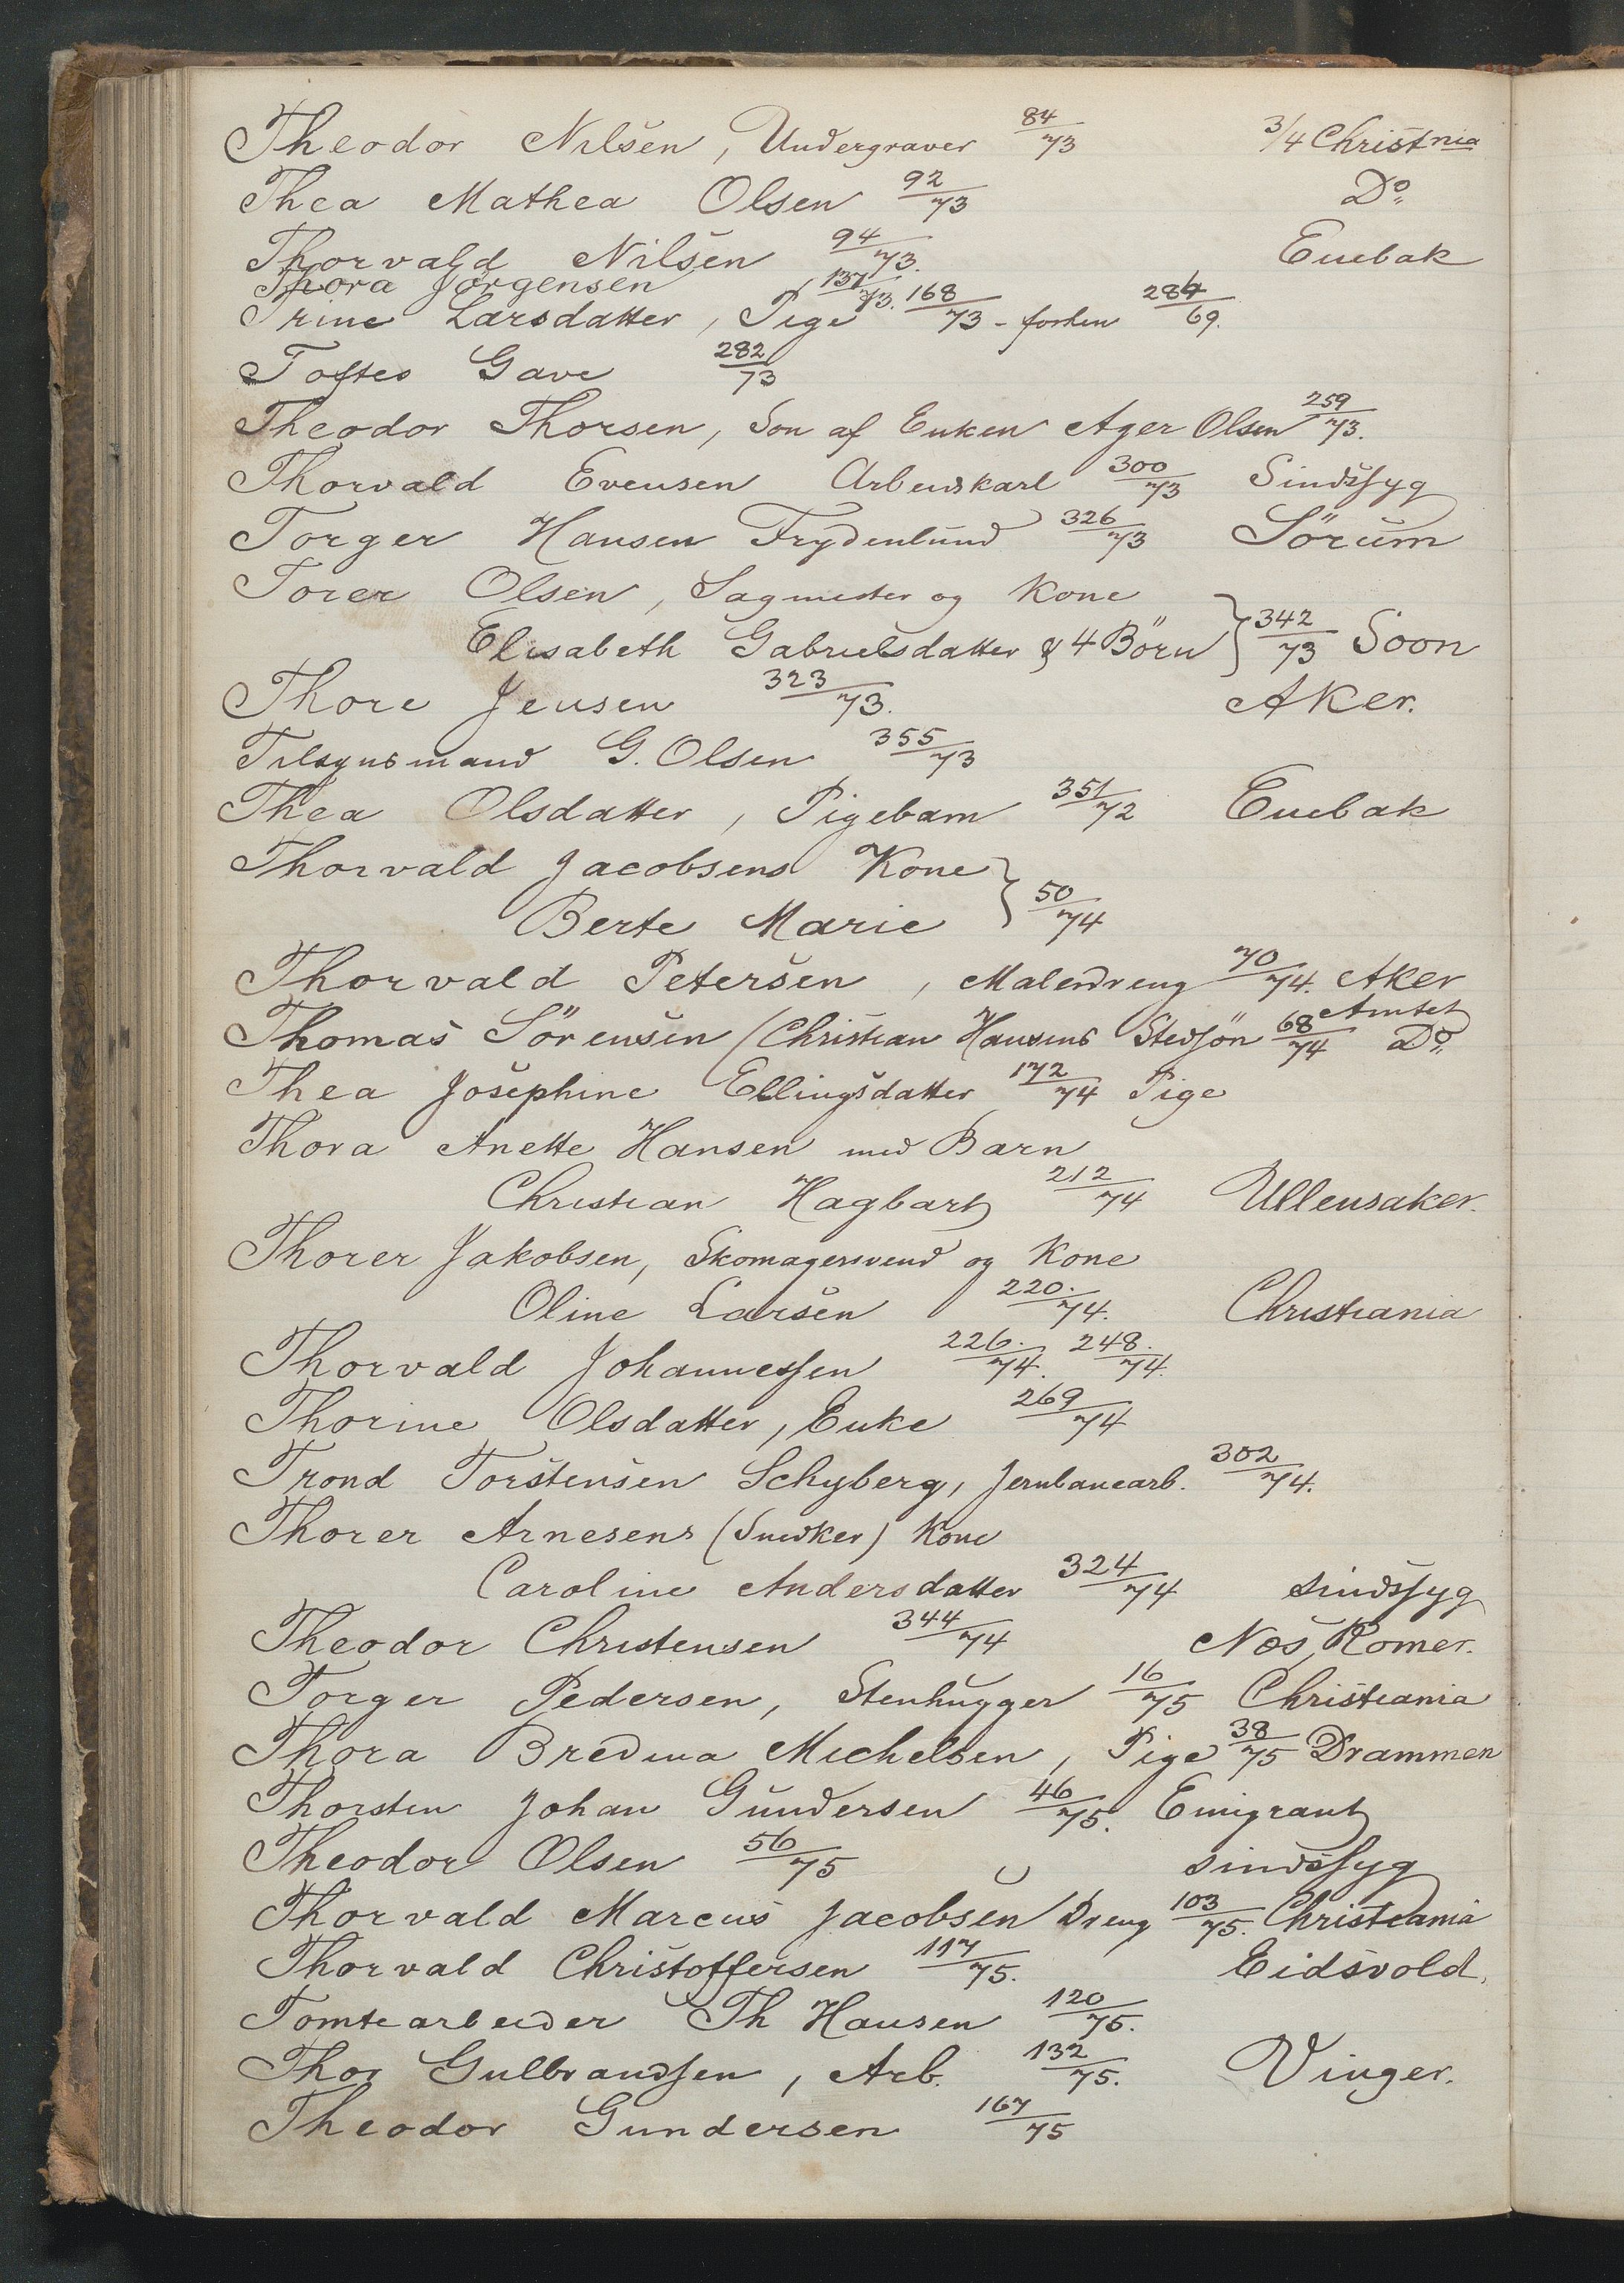 Theodor Nilsen, Undergraver 84/73 3/4 Christnia
Thea Mathea Olsen 92/73 Do
Thorvald Nilsen 94/73. Enebak
Thora Jörgensen 137/73.
Trine Larsdatter, Pige 168/73 - forhen 284/69.
Toftes Gave 282/73
Theodor Thorsen, Son af Enken Ager Olsen 259/73.
Thorvald Evensen Arbeidskarl 300/73 Sindssyg
Torger Hansen Frydenlund 326/73 Sörum
Torer Olsen, Sagmester og Kone
Elisabeth Gabrielsdatter & 4 Börn } 342/73 Soon
Thore Jensen 323/73. Aker.
Tilsynsmand G. Olsen 355/73
Thea Olsdatter, Pigebarn 351/72 Enebak
Thorvald Jacobsens Kone
Berte Marie } 50/74
Thorvald Petersen, Malerdreng 70/74. Aker
Thomas Sörensen (Christian Hansens Stedsön 68/74 Amtet Do
Thea Josephine Ellingsdatter 172/74 Pige
Thora Anette Hansen med Barn
Christian Hagbart 212/74 Ullensaker.
Thorer Jakobsen, Skomagersvend og Kone
Oline Larsen 220./74. Christiania
Thorvald Johannessen 226./74. 248./74.
Thorine Olsdatter, Enke 269/74
Trond Torstensen Schyberg, Jernbanearb. 302/74.
Thorer Arnesens (Snedker) Kone
Caroline Andersdatter 324/74 sindssyg
Theodor Christensen 344/74 Nes, Romer.
Torger Pedersen, Stenhugger 16/75 Christiania
Thora Bredina Michelsen, Pige 38/75 Drammen
Thorsten Johan Gundersen 46/75. Emigrant
Theodor Olsen 56/75 sindssyg
Thorvald Marcus Jacobsen Dreng 103/75. Christiania
Thorvald Christoffersen 117/75. Eidsvold.
Tomtearbeider Th Hansen 120/75.
Thor Gulbrandsen, Arb. 132/75. Vinger.
Theodor Gundersen 167/75